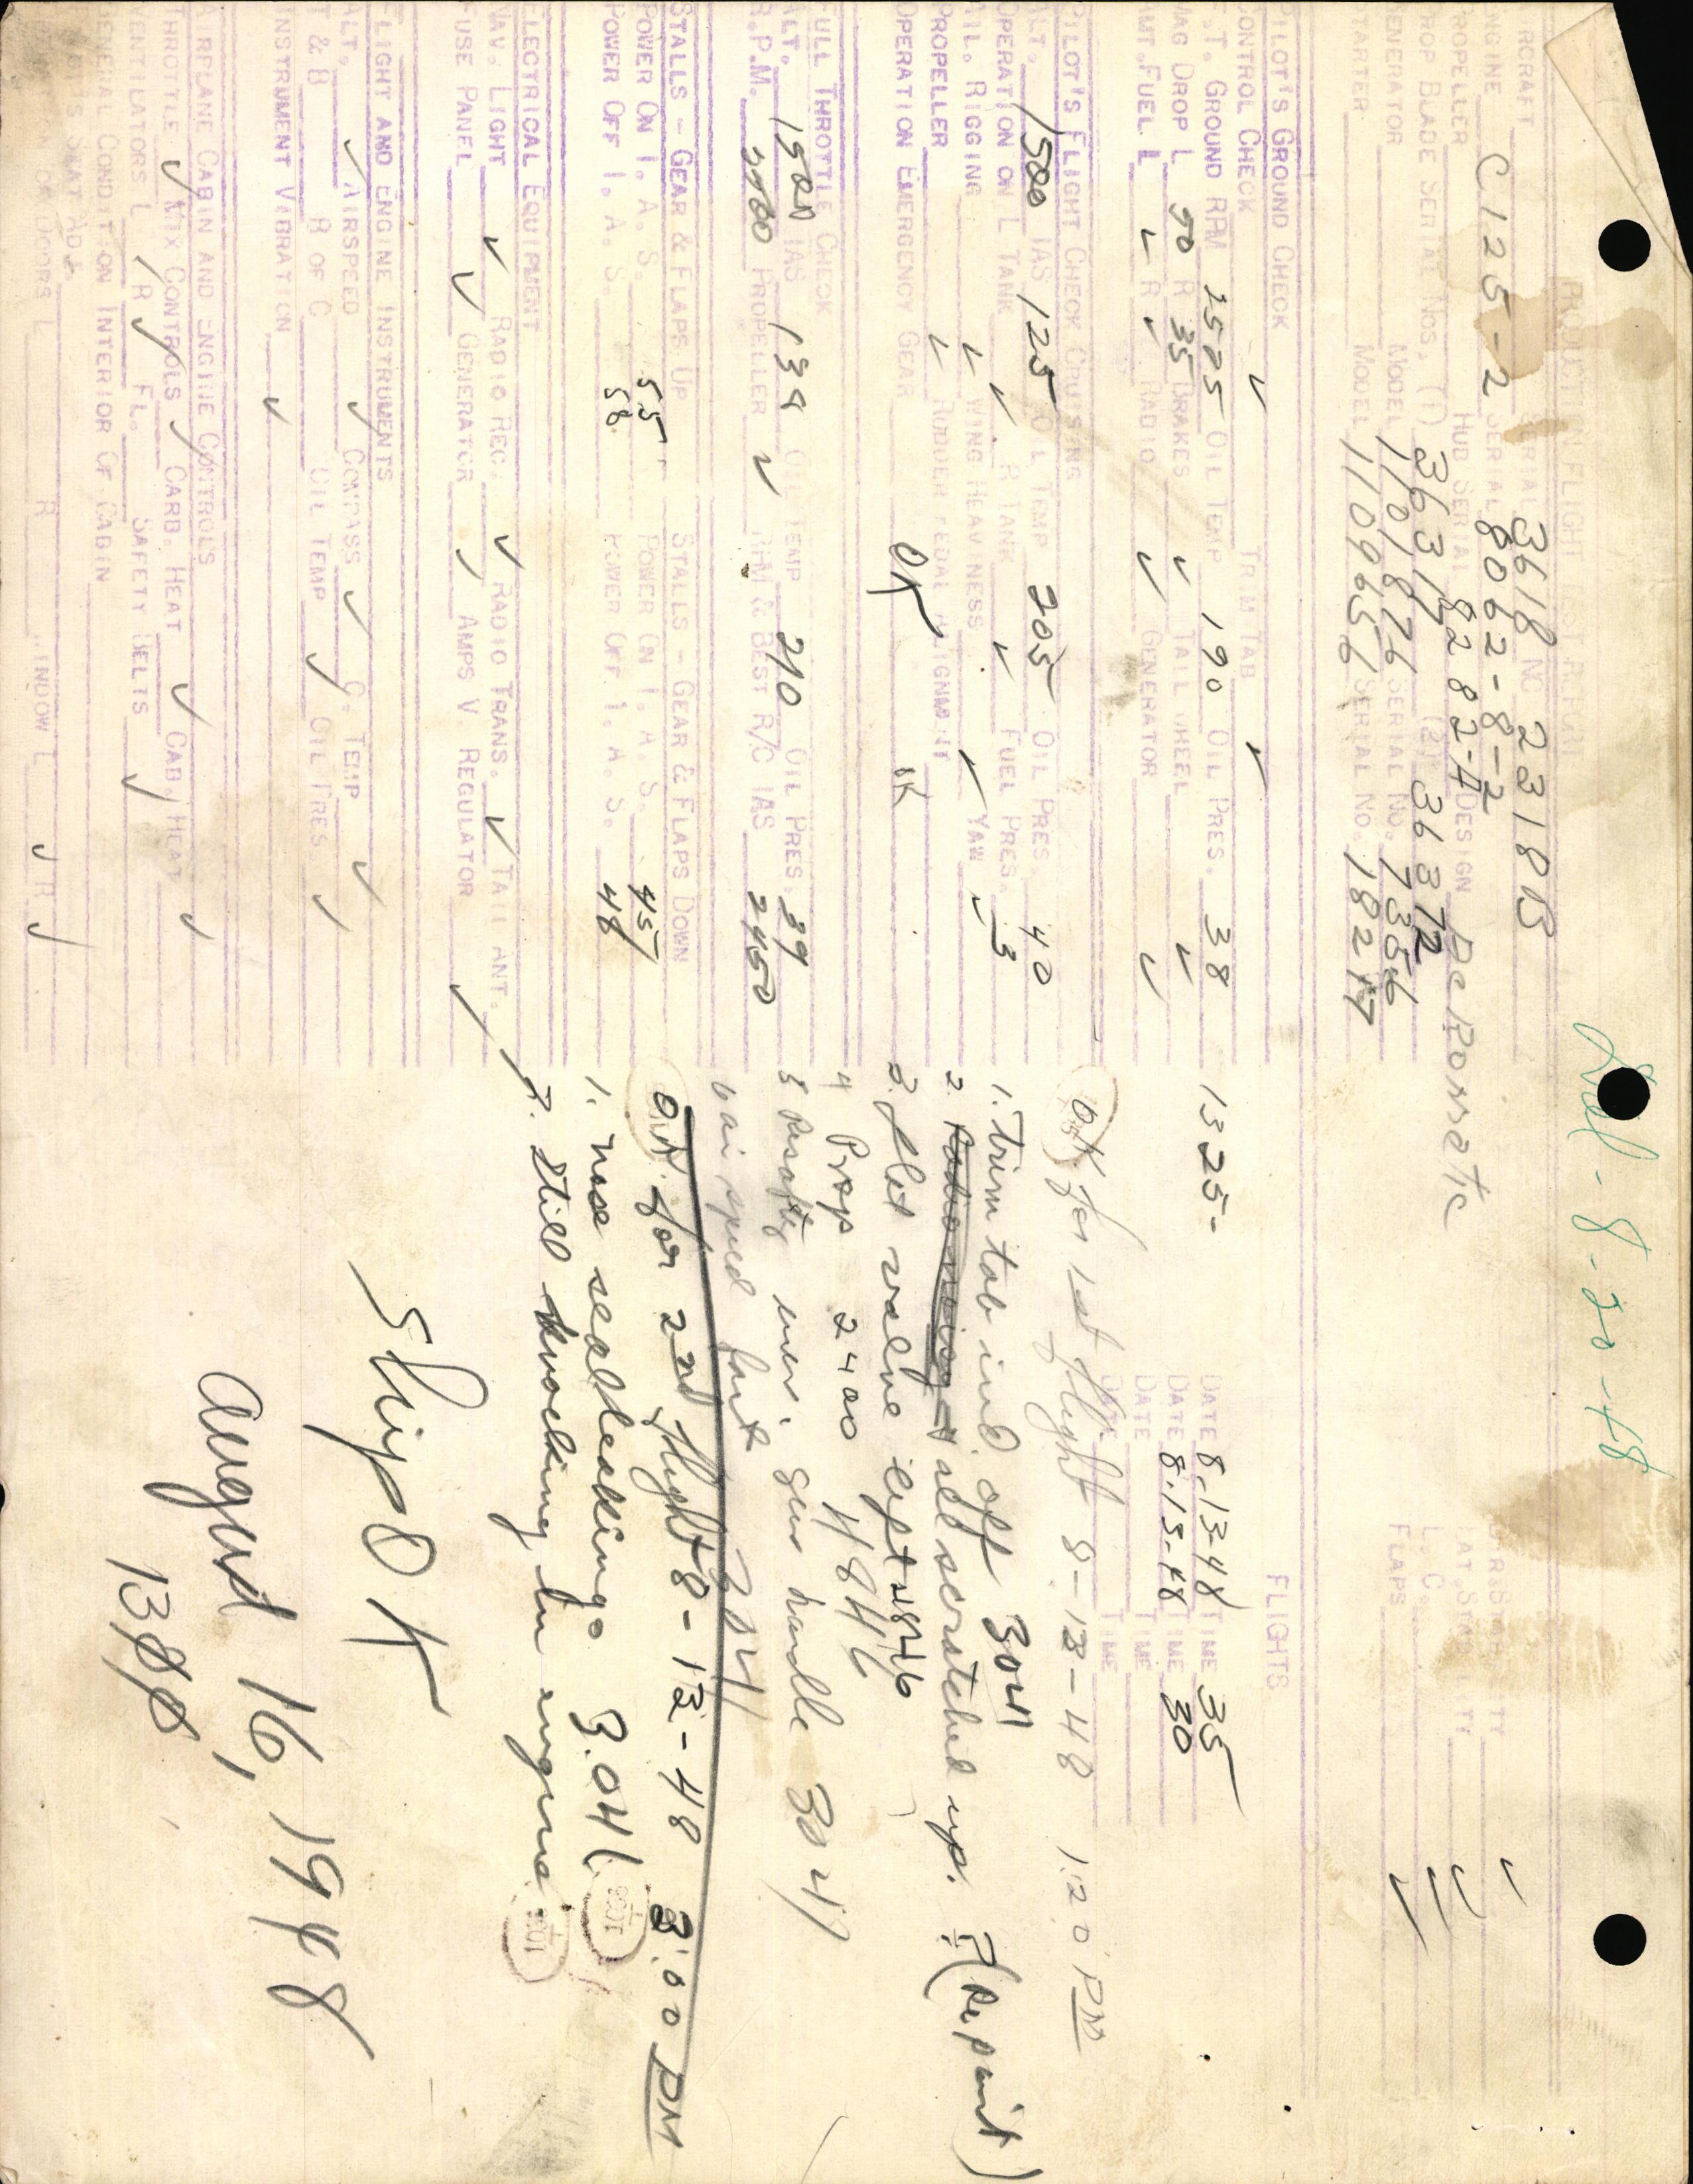 Del - 8-20-48
PRODUCTION FLIGHT TEST REPORT
AIRCRAFT SERIAL 3618 NC 2318B
ENGINE C125-2 SERIAL 8062-8-2
PROPELLER HUB SERIAL 8282-A DESIGN
PROP BLADE SERIAL NOS. (1) 36317 (2) 36372
GENERATOR MODEL 1101876 SERIAL NO. 7356
STARTER MODEL 1109656 SERIAL NO. 18217
L. C. ✓
FLAPS ✓
PILOT'S GROUND CHECK
FLIGHTS
CONTROL CHECK ✓ TRIM TAB ✓
S.T. GROUND RPM 2525 OIL TEMP 190 OIL PRES. 38 1325-
DATE 8-13-48 TIME 35
MAG DROP L 50 R 35 BRAKES ✓ TAIL WHEEL ✓
DATE 8-13-48 TIME 30
AMT. FUEL L ✓ R ✓ RADIO ✓ GENERATOR ✓
DATE TIME
DATE TIME
PILOT'S FLIGHT CHECK CRUISING
OK for 1st flight 8-13-48 1:20 PM
ALT. 1500 IAS 125 OIL TEMP 205 OIL PRES. 40
OPERATION ON L TANK ✓ R TANK ✓ FUEL PRES. 3
1. Trim tab ind. off 3041
AIL. RIGGING ✓ WING HEAVINESS ✓ YAW ✓
2. all scratched up. (Repaint)
PROPELLER ✓ RUDDER PEDAL ALIGNMENT
OPERATION EMERGENCY GEAR OK OK
4 Prop 2400 4846
FULL THROTTLE CHECK
ALT. 1500 IAS 139 OIL TEMP 210 OIL PRES. 39
5 Resafty emer. gear handle 3041
R.P.M. PROPELLER ✓ RPM @ BEST R/C IAS 2450
6 air speed fast 3041
STALLS - GEAR & FLAPS UP STALLS - GEAR & FLAPS DOWN
OK for 2nd flight 8-13-48 3:00 PM
POWER ON I. A. S. 55 POWER ON I. A. S. 45
POWER OFF I. A. S. 58 POWER OFF I. A. S. 48
1. nose seal leaking. 3.041
ELECTRICAL EQUIPMENT
2. Still knocking in engine
NAV. LIGHT ✓ RADIO REC. ✓ RADIO TRANS. ✓ TAIL ANT. ✓
FUSE PANEL ✓ GENERATOR ✓ AMPS V. REGULATOR ✓
FLIGHT AND ENGINE INSTRUMENTS
ALT. ✓ AIRSPEED ✓ COMPASS ✓ C. TEMP ✓
T & B R OF C OIL TEMP ✓ OIL PRES ✓
INSTRUMENT VIBRATION ✓
Ship OK
AIRPLANE CABIN AND ENGINE CONTROLS
THROTTLE ✓ MIX CONTROLS ✓ CARB. HEAT ✓ CAB. HEAT ✓
VENTILATORS L ✓ R ✓ FL. SAFETY BELTS ✓
GENERAL CONDITION INTERIOR OF CABIN
SEAT ADJ.
DOORS L R WINDOW L ✓ R ✓
August 16, 1948